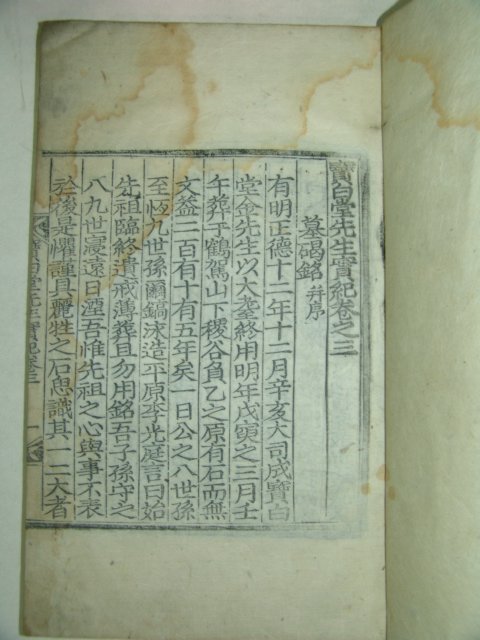 寶白堂先生實紀卷之三
墓碣銘 并序
有明正德十二年十二月辛亥大司成寶白
堂金先生以大耋終用明年戊寅之三月壬
午葬于鶴駕山下稷谷負乙之原有石而無
文益二百有十有五年矣一日公之八世孫
至恆九世孫爾鎬泳造平原李光庭言曰始
先祖臨終遺戒薄葬且勿用銘吾子孫守之
八九世寖遠日湮吾惟先祖之心與事不表
於後是懼謹具麗牲之石思識其一二大者
寶白堂先生實紀卷三 一